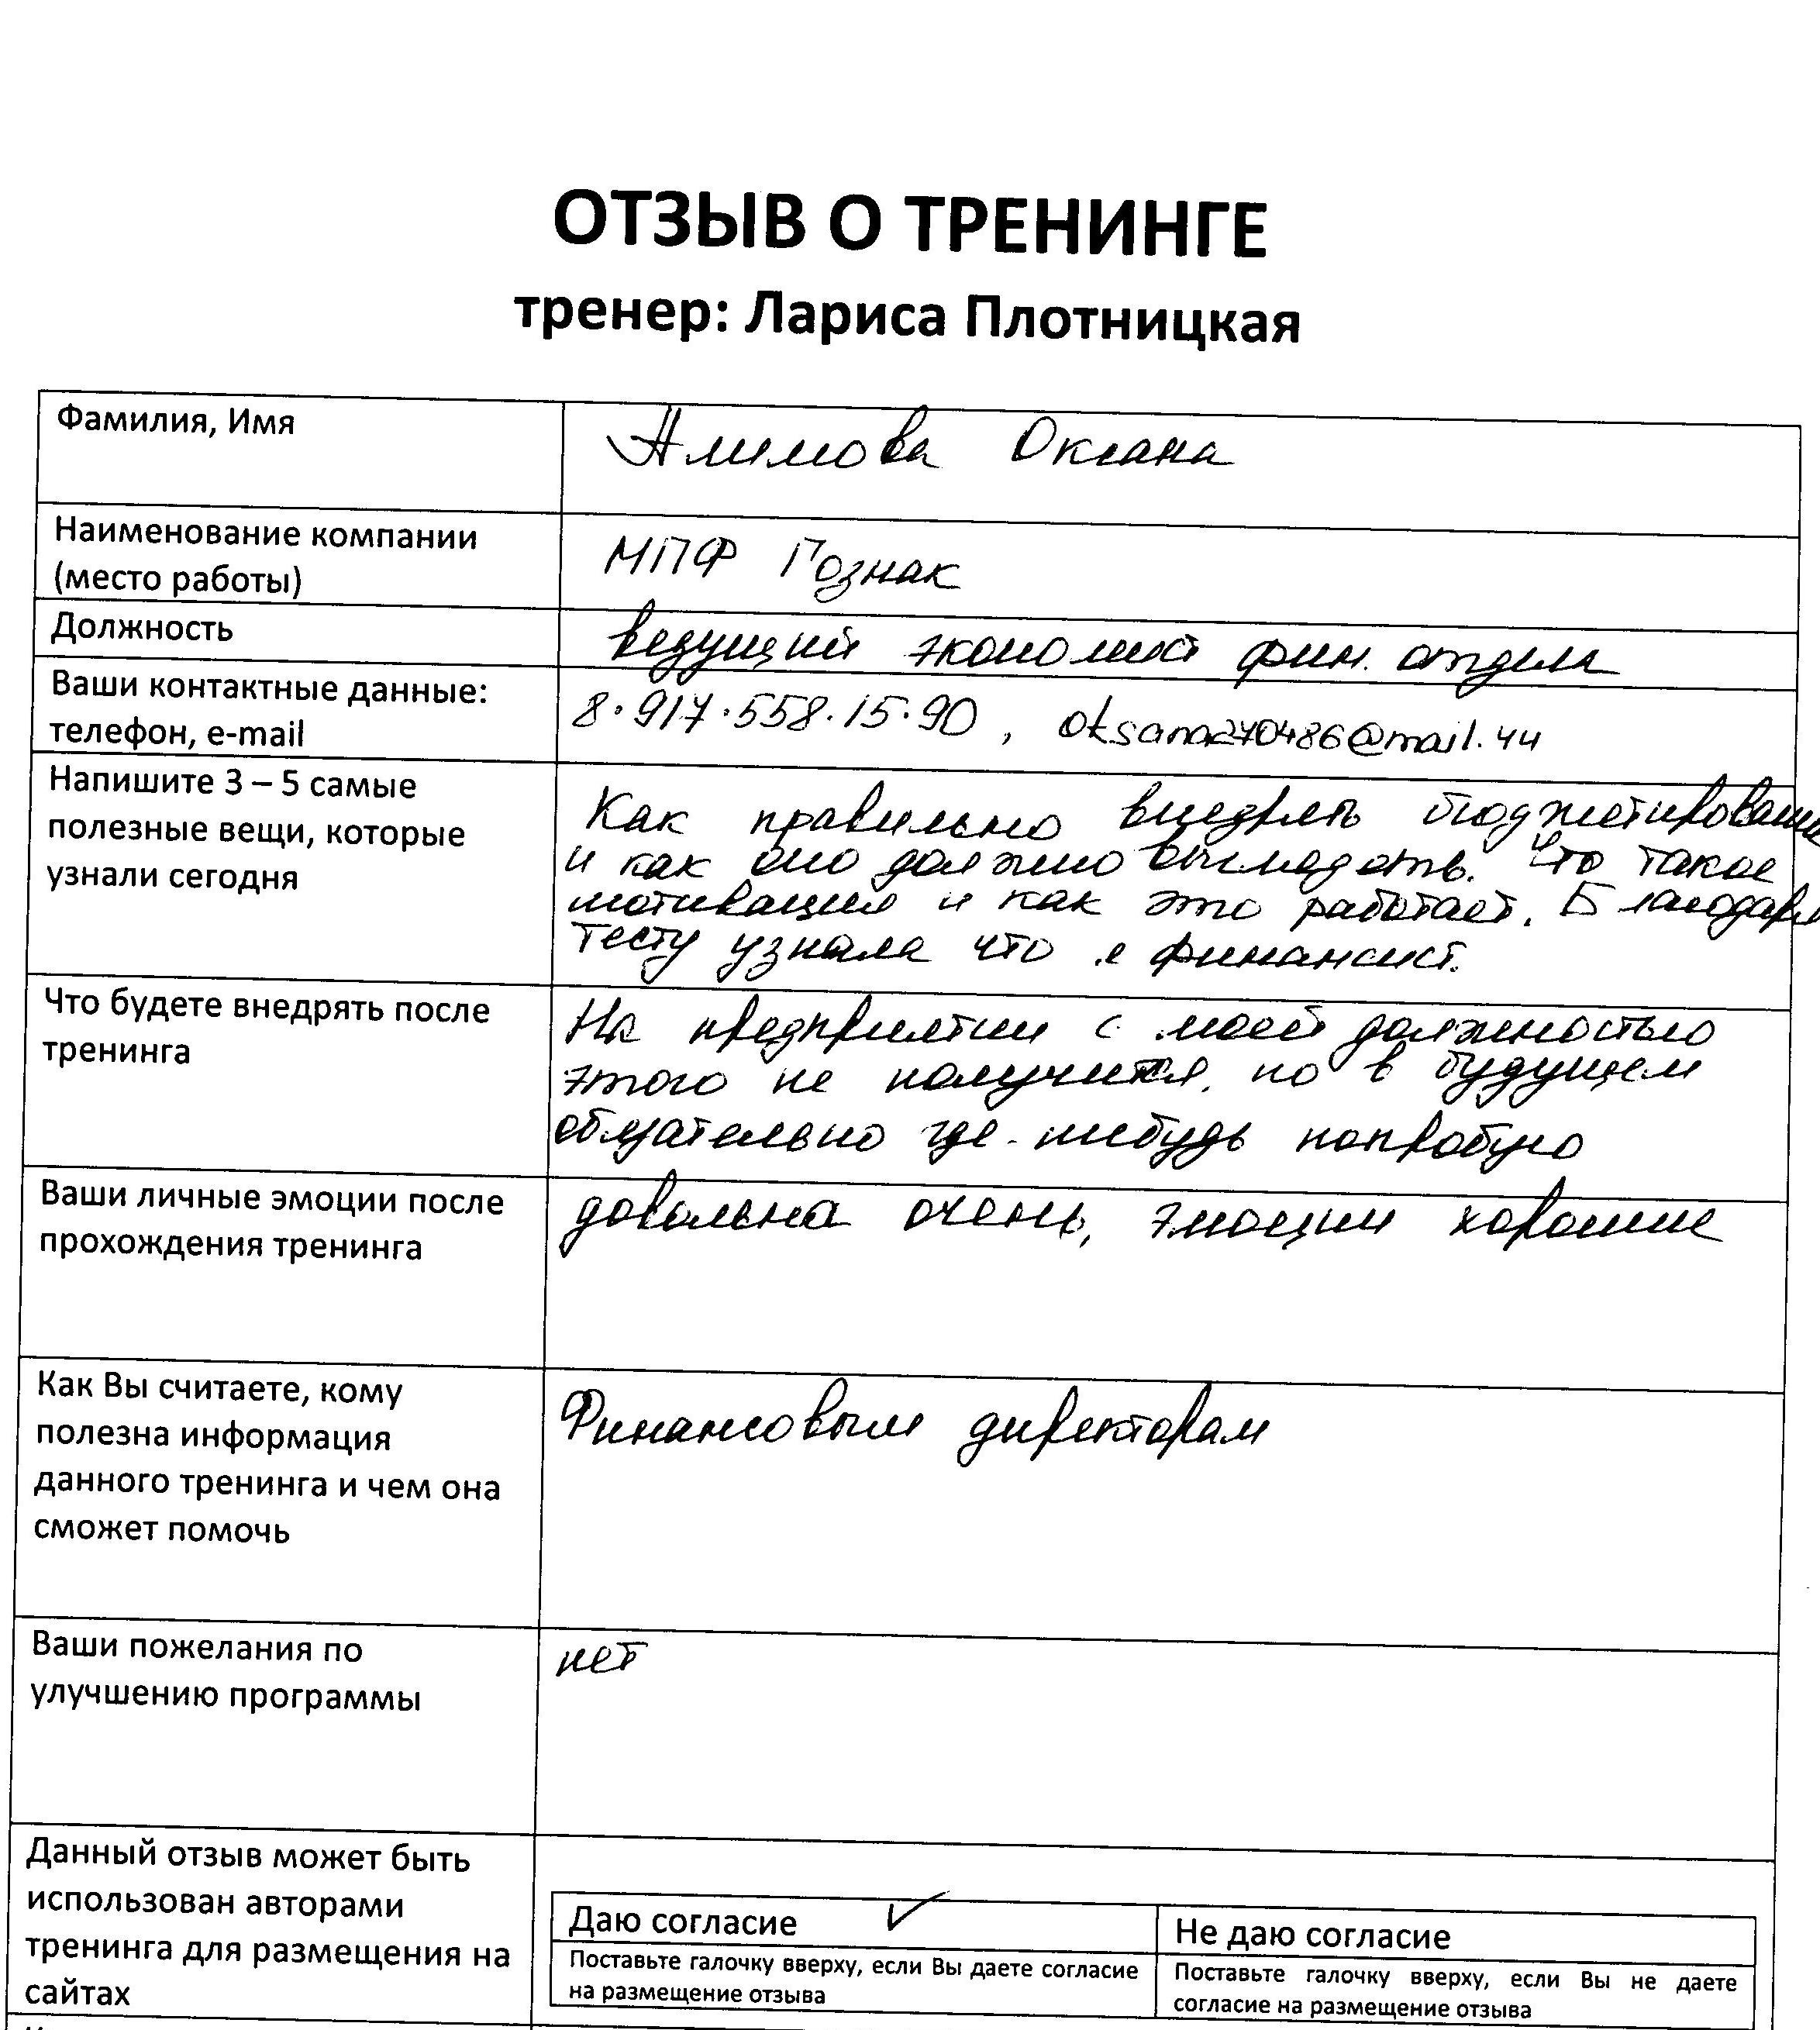 ОТЗЫВ О ТРЕНИНГЕ
тренер: Лариса Плотницкая
Фамилия, Имя
Алимова Оксана
Наименование компании
(место работы)
МПФ Гознак
Должность
ведущий экономист фин. отдела
Ваши контактные данные:
телефон, e-mail
8·917·558·15·90, oksana270486@mail.ru
Напишите 3 – 5 самые
полезные вещи, которые
узнали сегодня
Как правильно внедрять бюджетирование
и как оно должно выглядеть. Что такое
мотивация и как это работает. Благодаря
тесту узнала что я финансист.
Что будете внедрять после
тренинга
На предприятии с моей должностью
этого не получится, но в будущем
обязательно где-нибудь попробую
Ваши личные эмоции после
прохождения тренинга
довольна очень, эмоции хорошие
Как Вы считаете, кому
полезна информация
данного тренинга и чем она
сможет помочь
Финансовым директорам
Ваши пожелания по
улучшению программы
нет
Данный отзыв может быть
использован авторами
тренинга для размещения на
сайтах
Даю согласие ✓
Поставьте галочку вверху, если Вы даете согласие
на размещение отзыва
Не даю согласие
Поставьте галочку вверху, если Вы не даете
согласие на размещение отзыва